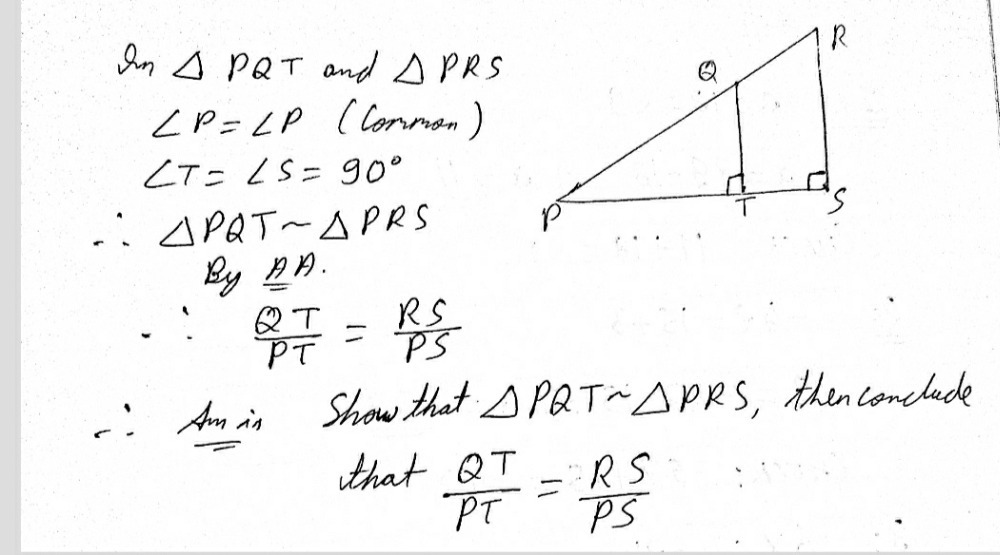 In △ PQT and △ PRS
∠P = ∠P (Common)
∠T = ∠S = 90°
∴ △PQT ~ △PRS
By AA.
∴ QT/PT = RS/PS
∴ Ans is Show that △PQT ~ △PRS, then conclude
that QT/PT = RS/PS
R
Q
P
T
S